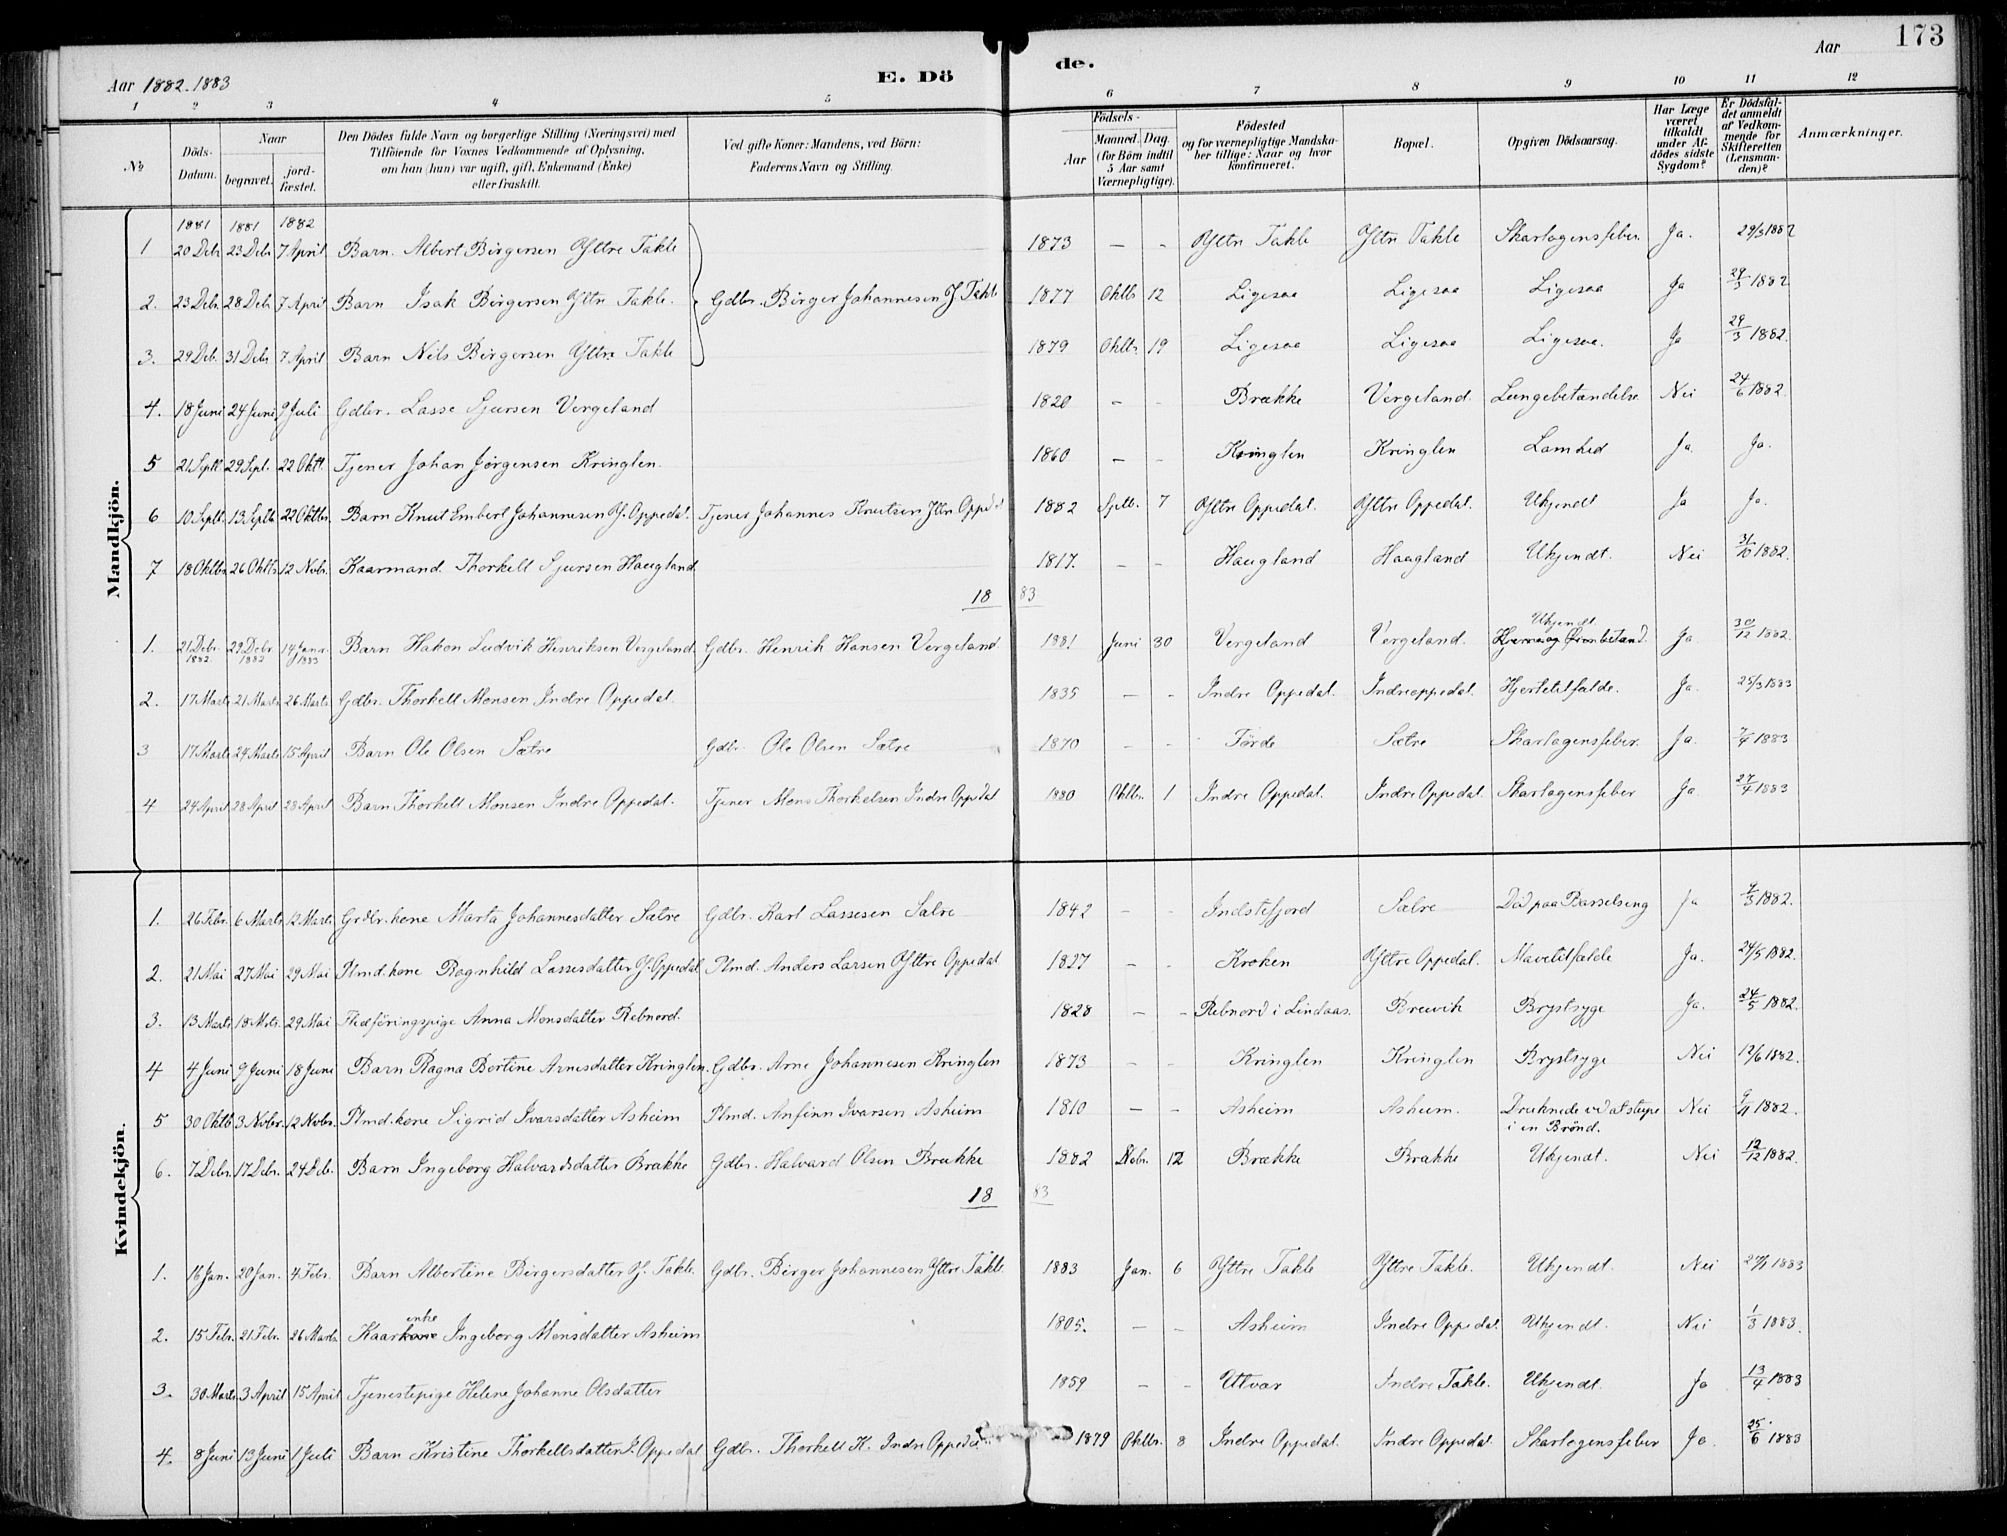 173
Aar 1882-1883 E. Dö de. Aar
1 2 3 4 5 6 7 8 9 10 11 12
№ Döds-Datum. Naar begravet. jord-fæstet. Den Dödes fulde Navn og borgerlige Stilling (Næringsvei) med Tilföiende for Voxnes Vedkommende af Oplysning, om han (hun) var ugift, gift, Enkemand (Enke) eller fraskilt. Ved gifte Koner: Mandens, ved Börn: Faderens Navn og Stilling. Födsels- Aar Maaned. Dag. (for Börn indtil 5 Aar samt Værnepligtige). Födested og for værnepligtige Mandska-ber tillige: Naar og hvor konfirmeret. Bopæl. Opgiven Dödsaarsag. Har Læge været tilkaldt under Af-dödes sidste Sygdom? Er Dödsfal-det anmeldt af Vedkom-mende for Skifteretten (Lensman-den)? Anmærkninger.
Mandkjön.
1881 1881 1882
1 20 Debr 23 Debr 7 April Barn. Albert Birgersen Yttre Takle 1873 — - Yttre Takle Yttre Takle Skarlagensfeber. Ja. 29/3 1882
2. 23 Debr. 28 Deb 7 April Barn Isak Birgersen Yttre Takle. Gdbr. Birger Johannesen Y Takle 1877 Oktb 12 Ligesaa Ligesaa Ligesaa Ja 29/3 1882
3. 29 Deb. 31 Debr 7 April Barn Nils Birgersen Yttre Takle 1879 Oktbr 19 Ligesaa Ligesaa Ligesaa. Ja 29/3 1882.
4. 18 Juni 24 Juni 9 Juli Gdbr. Lasse Sjursen Vergeland 1820 - - Brække Vergeland. Lungebetændelse Nei 24/6 1882.
5 21 Septb 29 Sept. 22 Oktb Tjener Johan Jörgensen Kringlen. 1860 - - Kringlen Kringlen Lamhed Ja Ja.
6 10 Septb. 13 Septb. 22 Oktbr. Barn Knut Embert Johannesen Y. Oppedal. Tjener Johannes Knutsen Yttre Oppedal 1882 Septb. 7 Yttre Oppedal. Yttre Oppedal. Ukjendt Ja Ja.
7 18 Oktbr. 26 Oktb. 12 Nobr. Kaarmand. Thorkell Sjursen Haugland 1817. - - Haugland Haugland Ukjendt. Nei 31/10 1882.
18 83
1. 21 Debr. 1882 29 Debr 1882 14 Janr. 1883 Barn Hakon Ludvik Henriksen Vergeland Gdbr. Henrik Hansen Vergeland 1881 Juni 30 Vergeland Vergeland. Ukjendt. Hjerne og Ørenbetænd. Ja 30/12 1882.
2. 17 Marts 21 Marts 26 Marts Gdbr. Thorkell Monsen Indre Oppedal. 1835 - - Indre Oppedal. Indreoppedal. Hjertetilfælde. Ja. 25/3 1883
3 17 Marts 24 Marts 15 April Barn Ole Olsen Sætre Gdbr. Ole Olsen Sætre 1870 - - Förde Sætre Skarlagensfeber. Ja. 7/4 1883
4 24 April 28 April 28 April Barn Thorkell Monsen Indre Oppedal. Tjener Mons Thorkelsen Indre Oppedal 1880 Oktbr. 1 Indre Oppedal. Indre Oppedal. Skarlagensfeber Ja. 27/4 1883
Kvindekjön.
1. 26 Febr. 6 Marts 12 Marts Grdbr. kone Marta Johannesdatter Sætre Gdbr. Karl Lassesen Sætre 1842 - - Indstefjord Sætre Död paa Barselseng Ja 9/3 1882.
2. 21 Mai 27 Mai 29 Mai Plmd. kone Ragnhild Lassesdatter Y. Oppedal Plmd. Anders Larsen Yttre Oppedal 1827 - - Kroken Yttre Oppedal. Mavetilfælde Ja. 24/5 1882.
3. 13 Marts 18 Mts. 29 Mai Födföringspige Anna Monsdatter Rebnord. 1828 - - Rebnord i Lindaas. Brevik Brystsyge Ja. 24/5 1882.
4 4 Juni 9 Juni 18 Juni Barn Ragna Bertine Arnesdatter Kringlen. Gdbr. Arne Johannesen Kringlen 1873 - - Kringlen Kringlen Brystsyge Nei 12/6 1882.
5 30 Oktb 3 Nobr. 12 Nobr. Plmd. kone Sigrid Ivarsdatter Asheim Plmd. Anfinn Ivarsen Asheim 1810 - - Asheim Asheim. Druknede ved at stupe i en Brönd. Nei 9/11 1882.
6. 7 Debr. 17 Debr. 24 Deb. Barn Ingeborg Halvardsdatter Brække Gdbr. Halvard Olsen Brække 1882 Nobr. 12 Brække Brække Ukjendt. Nei 12/12 1882.
18 83
1. 16 Jan. 20 Jan. 4 Febr. Barn Albertine Birgersdatter Y. Takle. Gdbr. Birger Johannesen Yttre Takle 1883 Jan. 6 Yttre Takle Yttre Takle. Ukjendt. Nei 27/1 1883
2. 15 Febr. 21 Febr. 26 Marts Kaarkone enke Ingeborg Monsdatter Asheim 1805. - - Asheim Indre Oppedal. Ukjendt. Nei 1/3 1883.
3. 30 Marts 3 April 15 April Tjenestepige Helene Johanne Olsdatter 1859 - - Utvær Indre Takle. Ukjendt. Ja 13/4 1883
4. 8 Juni 13 Juni 1 Juli Barn Kristine Thorkellsdatter I. Oppedal Gdbr. Thorkell K. Indre Oppedal 1879 Oktbr. 8 Indre Oppedal. Indre Oppedal. Skarlagensfeber Ja. 25/6 1883